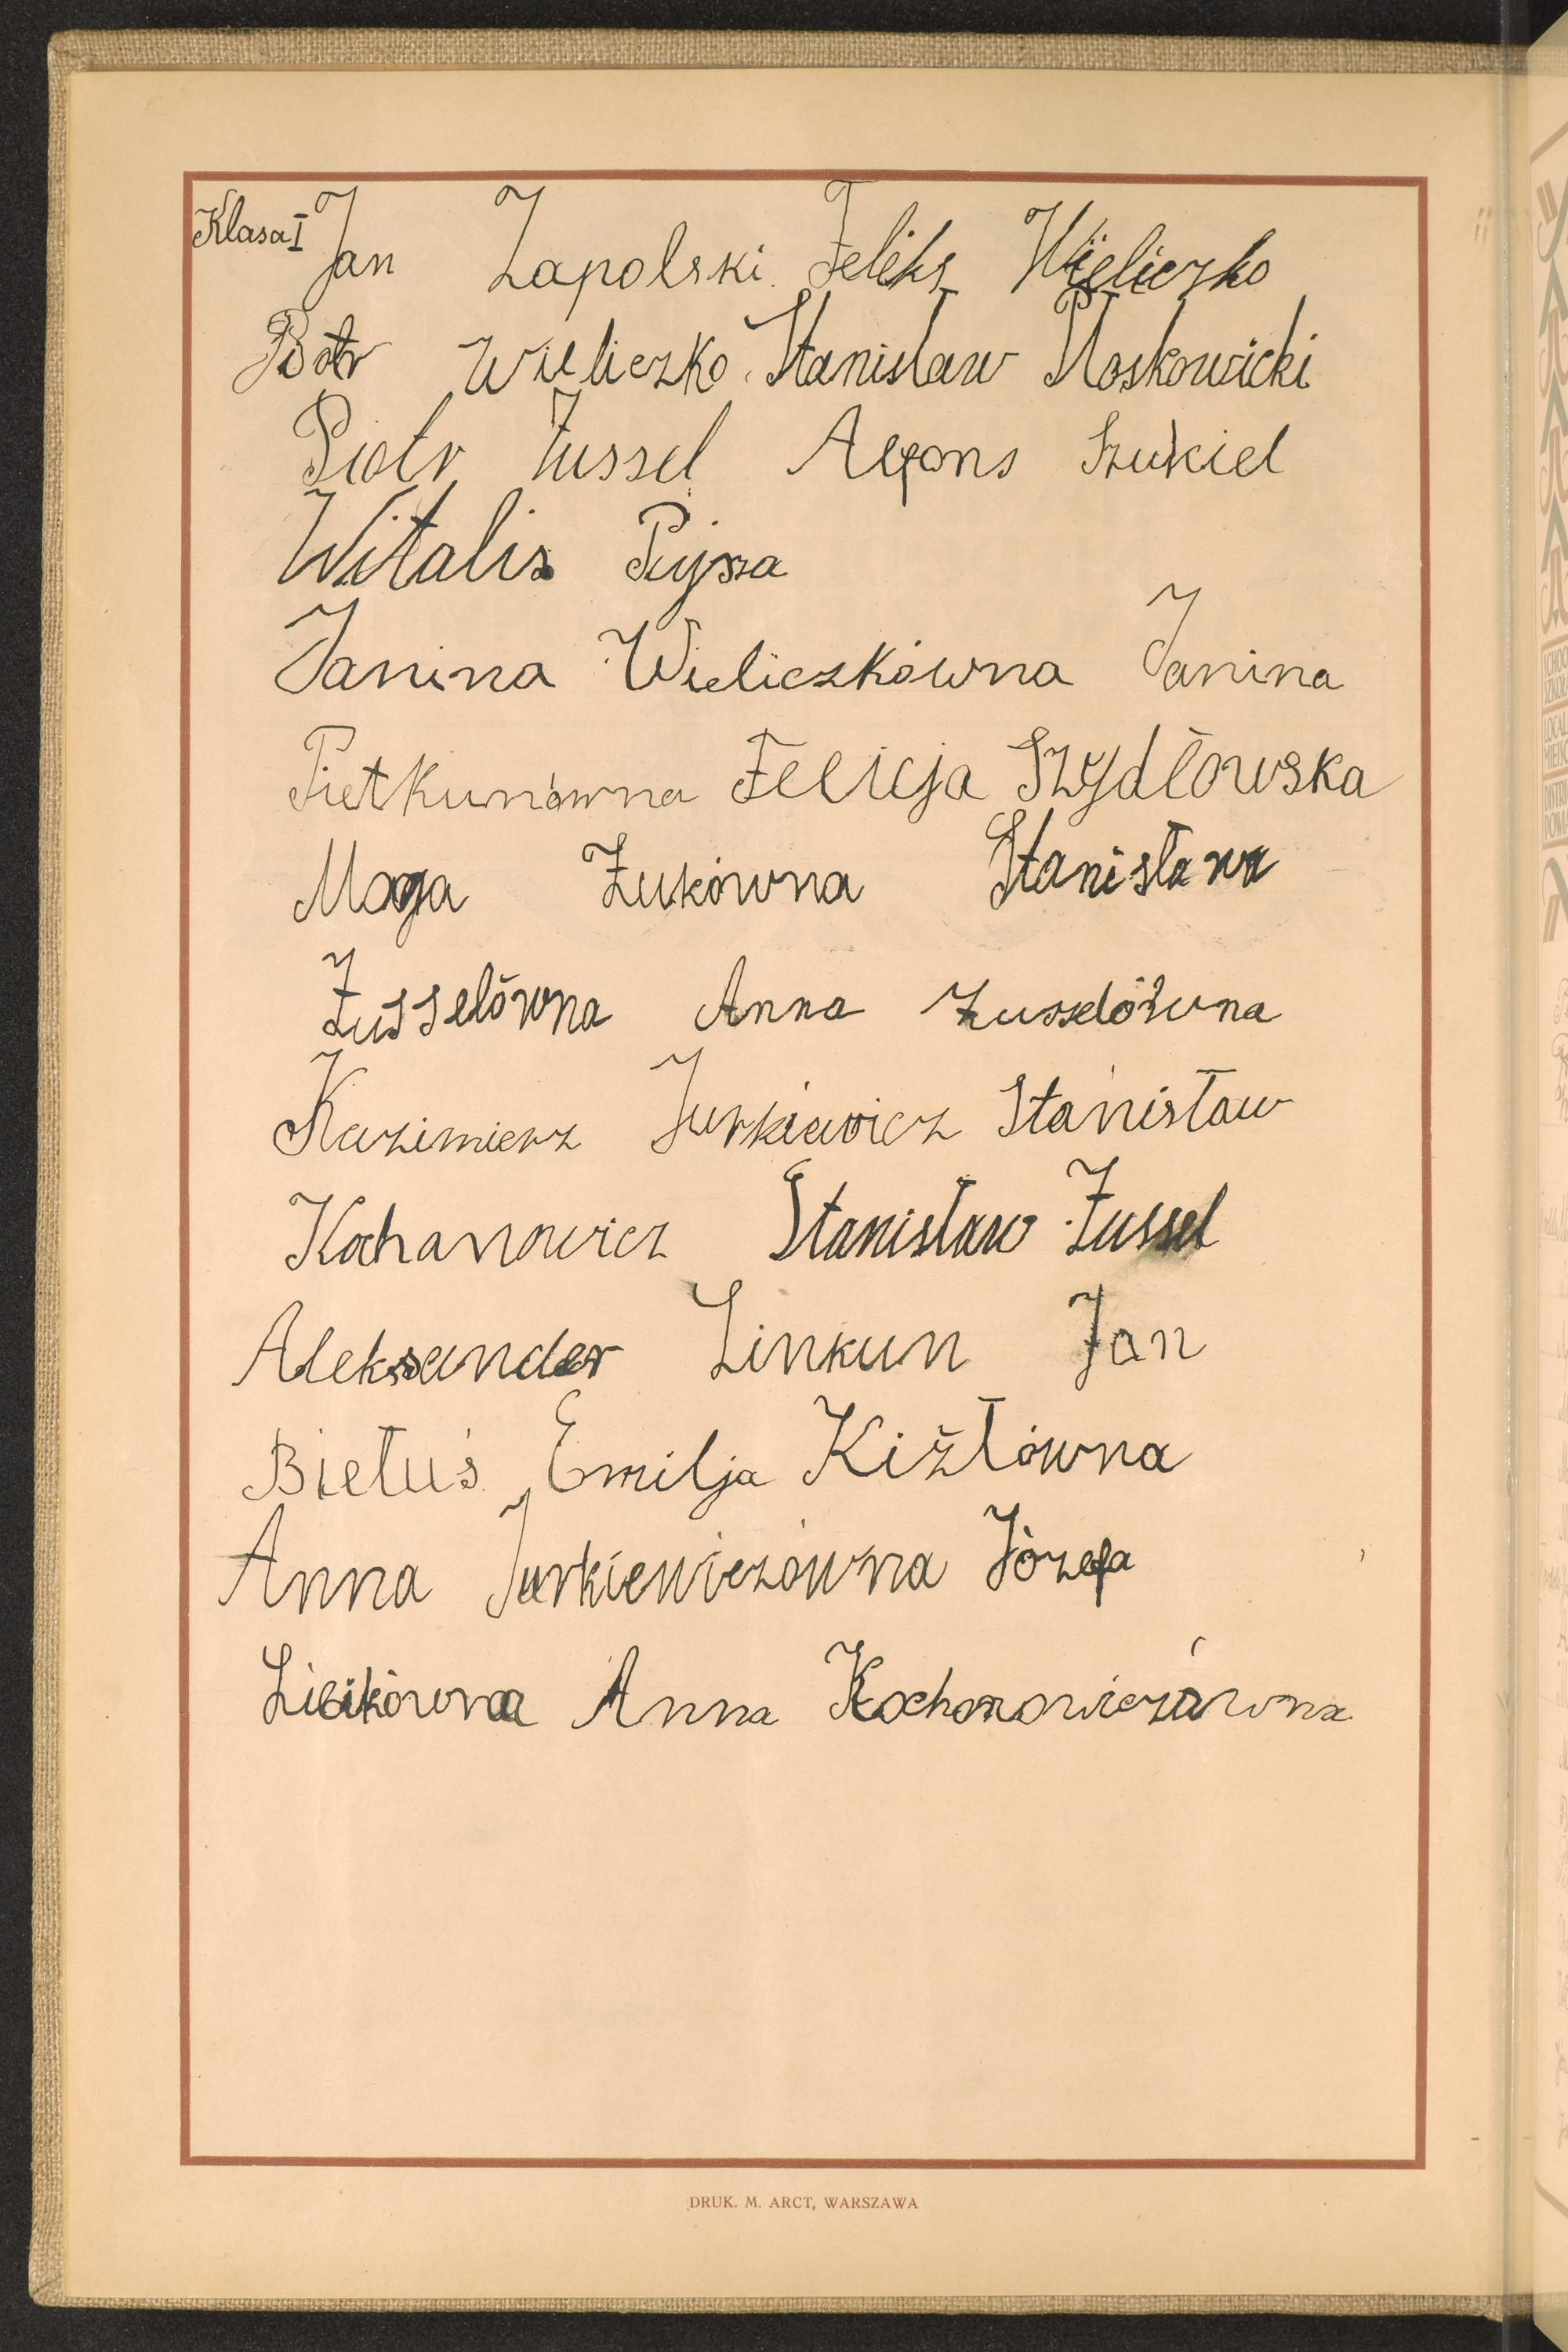 Klasa I Jan Zapolski. Feliks Wieliczko
Piotr Wieliczko. Stanisław Moskowicki
Piotr Żussel Alfons Szukiel
Witalis Pujsza
Janina Wieliczkówna Janina
Pietkunówna Felicja Szydłowska
Maga Żukówna Stanisława
Żusselówna Anna Żusselówna
Kazimierz Jurkiewicz Stanisław
Kochanowicz Stanisław Żussel
Aleksander Linkun Jan
Bietuś Emilja Kiżłówna
Anna Jurkiewiczówna Józefa
Anna Kochanowiczówna
DRUK. M. ARCT, WARSZAWA